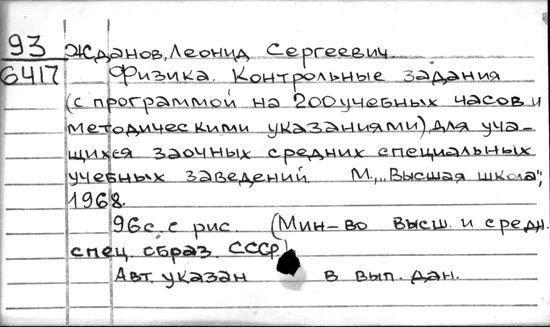 93
6417
Жданов, Леонид Сергеевич.
Физика. Контрольные задания
(с программой на 200 учебных часов и
методическими указаниями) для уча-
щихся заочных средних специальных
учебных заведений. М., "Высшая школа",
1968.
96 с. с рис. (Мин-во высш. и средн.
спец. образ. СССР)
Авт. указан в вып. дан.